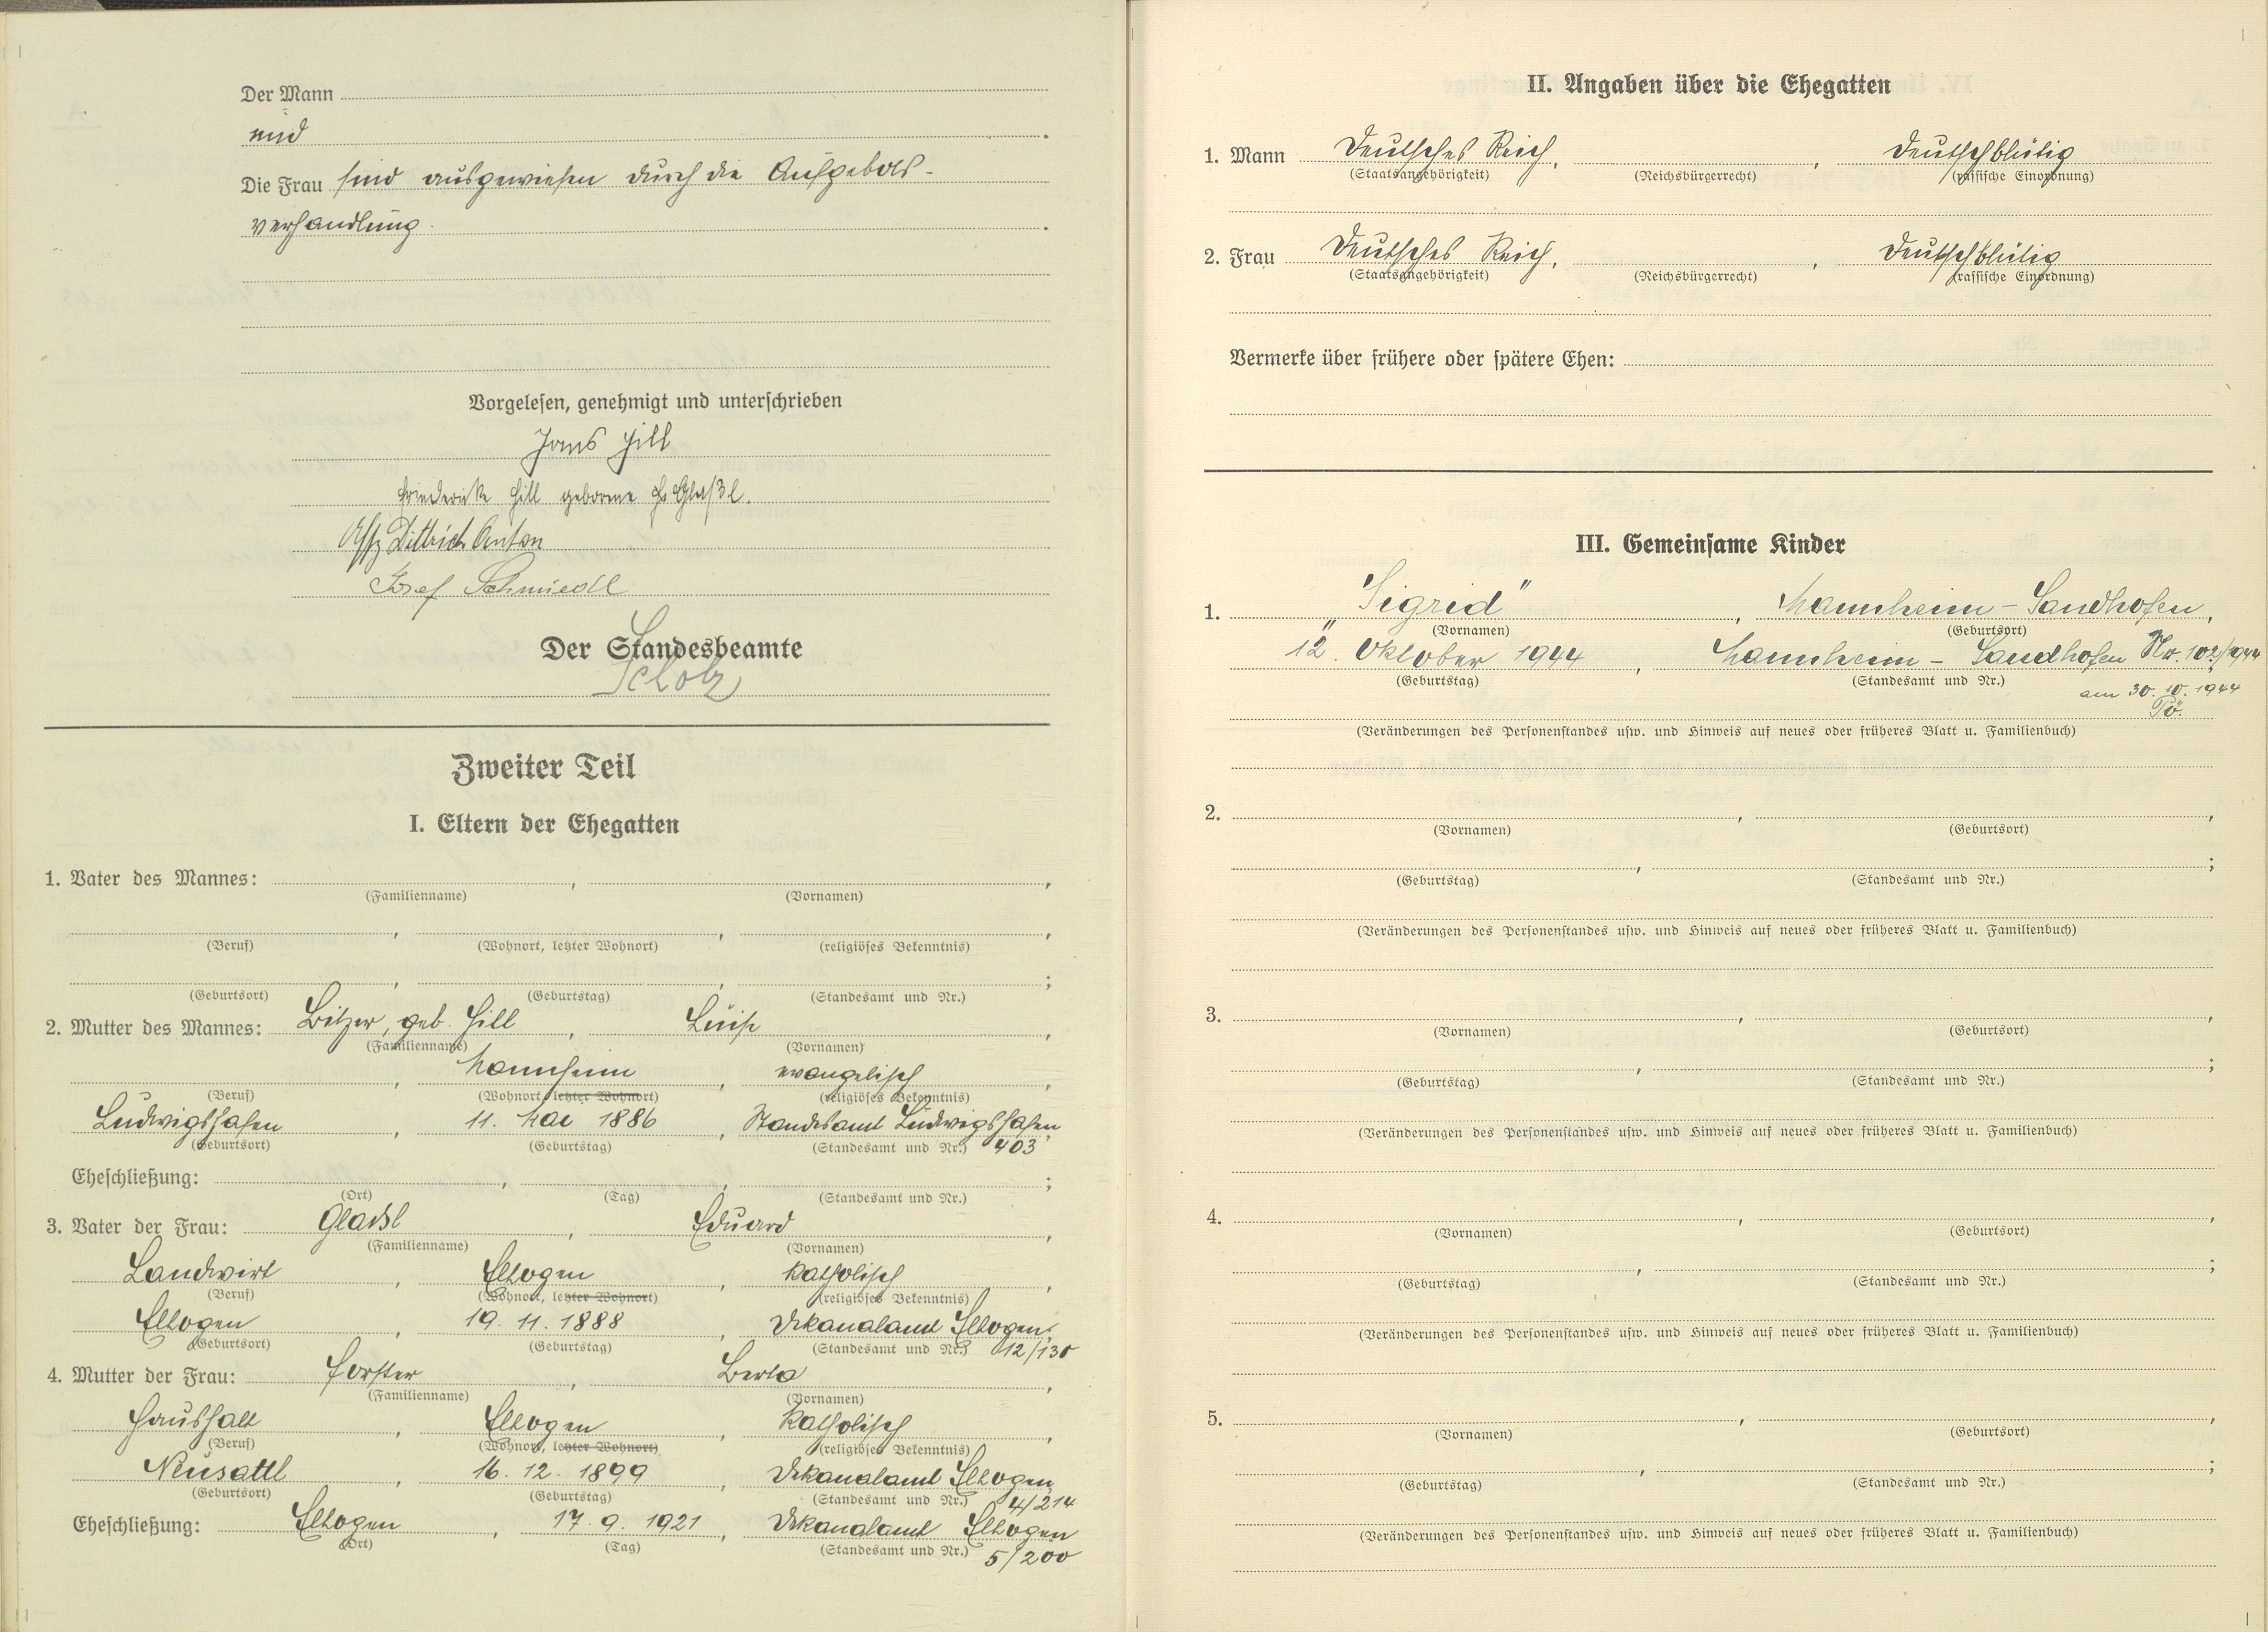 Der Mann
und
Die Frau sind ausgewiesen durch die Aufgebots-
verhandlung.
Vorgelesen, genehmigt und unterschrieben
Hans Hill
Friederike Hill geborene Glaßl.
Uffz Dittrich Anton
Josef Schmiedl
Der Standesbeamte
Scholz
Zweiter Teil
I. Eltern der Ehegatten
1. Vater des Mannes: ,
(Familienname) (Vornamen)
(Beruf) (Wohnort, letzter Wohnort) (religiöses Bekenntnis)
(Geburtsort) (Geburtstag) (Standesamt und Nr.)
2. Mutter des Mannes: Bitzer, geb. Hill, Luise
(Familienname) (Vornamen)
Mannheim, evangelisch
(Beruf) (Wohnort, letzter Wohnort) (religiöses Bekenntnis)
Ludwigshafen, 11. Mai 1886, Standesamt Ludwigshafen
(Geburtsort) (Geburtstag) (Standesamt und Nr.) 403
Eheschließung:
(Ort) (Tag) (Standesamt und Nr.)
3. Vater der Frau: Glassl, Eduard
(Familienname) (Vornamen)
Landwirt, Elbogen, katholisch
(Beruf) (Wohnort, letzter Wohnort) (religiöses Bekenntnis)
Elbogen, 19. 11. 1888, Dekanalamt Elbogen,
(Geburtsort) (Geburtstag) (Standesamt und Nr.) 12/130
4. Mutter der Frau: Forster, Berta
(Familienname) (Vornamen)
Haushalt, Elbogen, katholisch
(Beruf) (Wohnort, letzter Wohnort) (religiöses Bekenntnis)
Neusattl, 16. 12. 1899, Dekanalamt Elbogen
(Geburtsort) (Geburtstag) (Standesamt und Nr.) 4/214
Eheschließung: Elbogen, 17. 9. 1921, Dekanalamt Elbogen
(Ort) (Tag) (Standesamt und Nr.) 5/200
II. Angaben über die Ehegatten
1. Mann Deutsches Reich, , deutschblütig
(Staatsangehörigkeit) (Reichsbürgerrecht) (rassische Einordnung)
2. Frau Deutsches Reich, , deutschblütig
(Staatsangehörigkeit) (Reichsbürgerrecht) (rassische Einordnung)
Vermerke über frühere oder spätere Ehen:
III. Gemeinsame Kinder
1. "Sigrid", Mannheim-Sandhofen,
(Vornamen) (Geburtsort)
12. Oktober 1944, Mannheim - Sandhofen Nr. 102/1944
(Geburtstag) (Standesamt und Nr.)
am 30. 10. 1944
(Veränderungen des Personenstandes usw. und Hinweis auf neues oder früheres Blatt u. Familienbuch)
2. , ,
(Vornamen) (Geburtsort)
(Geburtstag) (Standesamt und Nr.)
(Veränderungen des Personenstandes usw. und Hinweis auf neues oder früheres Blatt u. Familienbuch)
3. , ,
(Vornamen) (Geburtsort)
(Geburtstag) (Standesamt und Nr.)
(Veränderungen des Personenstandes usw. und Hinweis auf neues oder früheres Blatt u. Familienbuch)
4. , ,
(Vornamen) (Geburtsort)
(Geburtstag) (Standesamt und Nr.)
(Veränderungen des Personenstandes usw. und Hinweis auf neues oder früheres Blatt u. Familienbuch)
5. , ,
(Vornamen) (Geburtsort)
(Geburtstag) (Standesamt und Nr.)
(Veränderungen des Personenstandes usw. und Hinweis auf neues oder früheres Blatt u. Familienbuch)